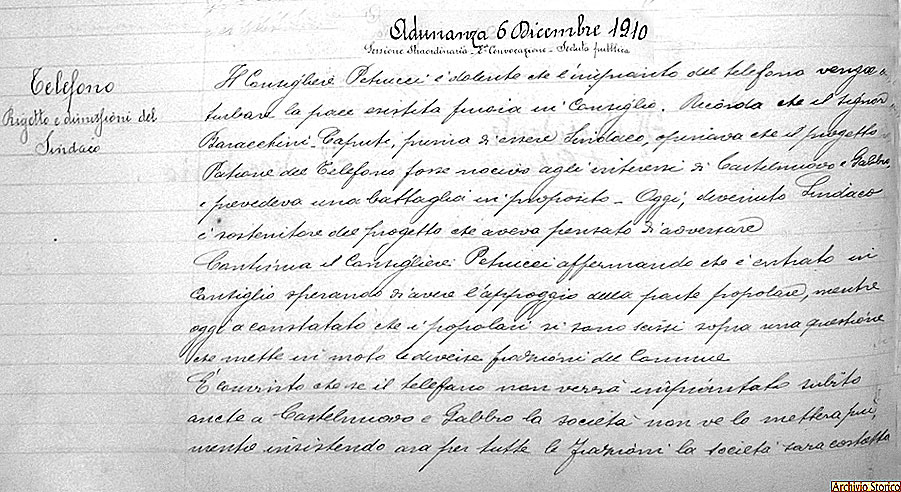 Adunanza 6 Dicembre 1910
Sessione Straordinaria - 2ª Convocazione - Seduta pubblica
Telefono
Rigetto e dimissioni del
Sindaco
Il Consigliere Petrucci è dolente che l'impianto del telefono venga a
turbare la pace esistita finora in Consiglio. Ricorda che il signor
Baracchini-Caputi, prima di essere Sindaco, opinava che il progetto
Patione del Telefono fosse nocivo agli interessi di Castelnuovo e Gabbro
e prevedeva una battaglia in proposito - Oggi, divenuto Sindaco
è sostenitore del progetto che aveva pensato di avversare
Continua il Consigliere Petrucci affermando che è entrato in
Consiglio sperando di avere l'appoggio della parte popolare, mentre
oggi a constatato che i popolari si sono scissi sopra una questione
che mette in moto le diverse frazioni del Comune
È convinto che se il telefano non verrà impiantato subito
anche a Castelnuovo e Gabbro la società non ve lo metterà più,
mentre insistendo ora per tutte le frazioni la società sarà costretta
Archivio Storico